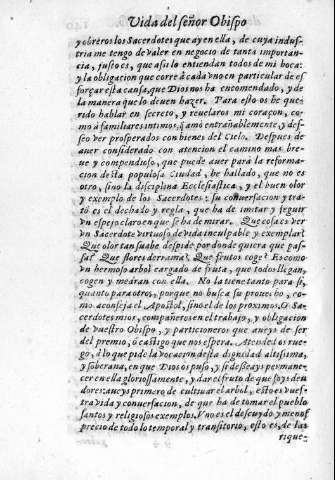 Vida del señor Obispo
y obreros los Sacerdotes que ay en ella, de cuya indus-
tria me tengo de valer en negocio de tanta importan-
cia, justo es, que assi lo entiendan todos de mi boca:
y la obligacion que corre à cada vno en particular de es-
forçar esta causa, que Dios nos ha encomendado, y de
la manera que lo deuen hazer. Para esto os he que-
rido hablar en secreto, y reuelaros mi coraçon, co-
mo à familiares intimos, q̃ amo entrañablemente, y des-
seo ver prosperados con bienes del Cielo. Despues de
auer considerado con atencion el camino mas bre-
ue y compendioso, que puede auer para la reforma-
cion desta populosa Ciudad, he hallado, que no es
otro, sino la disciplina Ecclesiastica, y el buen olor
y exemplo de los Sacerdotes: su conuersacion y tra-
to es el dechado y regla, que ha de imitar y seguir
vn espejo claro en que se ha de mirar. Que cosa es ver
vn Sacerdote virtuoso de vida inculpable y exemplar?
Que olor tan suaue despide por donde quiera que pas-
sa? Que flores derrama? Que frutos coge? Es como
vn hermoso arbol cargado de fruta, que todos llegan,
cogen y medran con ella. No la tiene tanto para si,
quanto para otros, porque no busca su prouecho, co-
mo aconseja el Apostol, sino el de los proximos. O Sa-
cerdotes mios, compañeros en el trabajo, y obligacion
de vuestro Obispo, y participioneros que aueys de ser
del premio, ò castigo que nos espera. Atended os rue-
go, à lo que pide la vocacion desta dignidad altissima,
y soberana, en que Dios os puso, y si desseays perman-
cer en ella gloriosamente, y dar el fruto de que soys deu-
dores: aueys primero de cultiuar el arbol, esto es vues-
tra vida y conuersacion, de que ha de tomar el pueblo
santos y religiosos exemplos. Vno es el descuydo y menos
precio de todo lo temporal y transitorio, esto es, de las
rique-